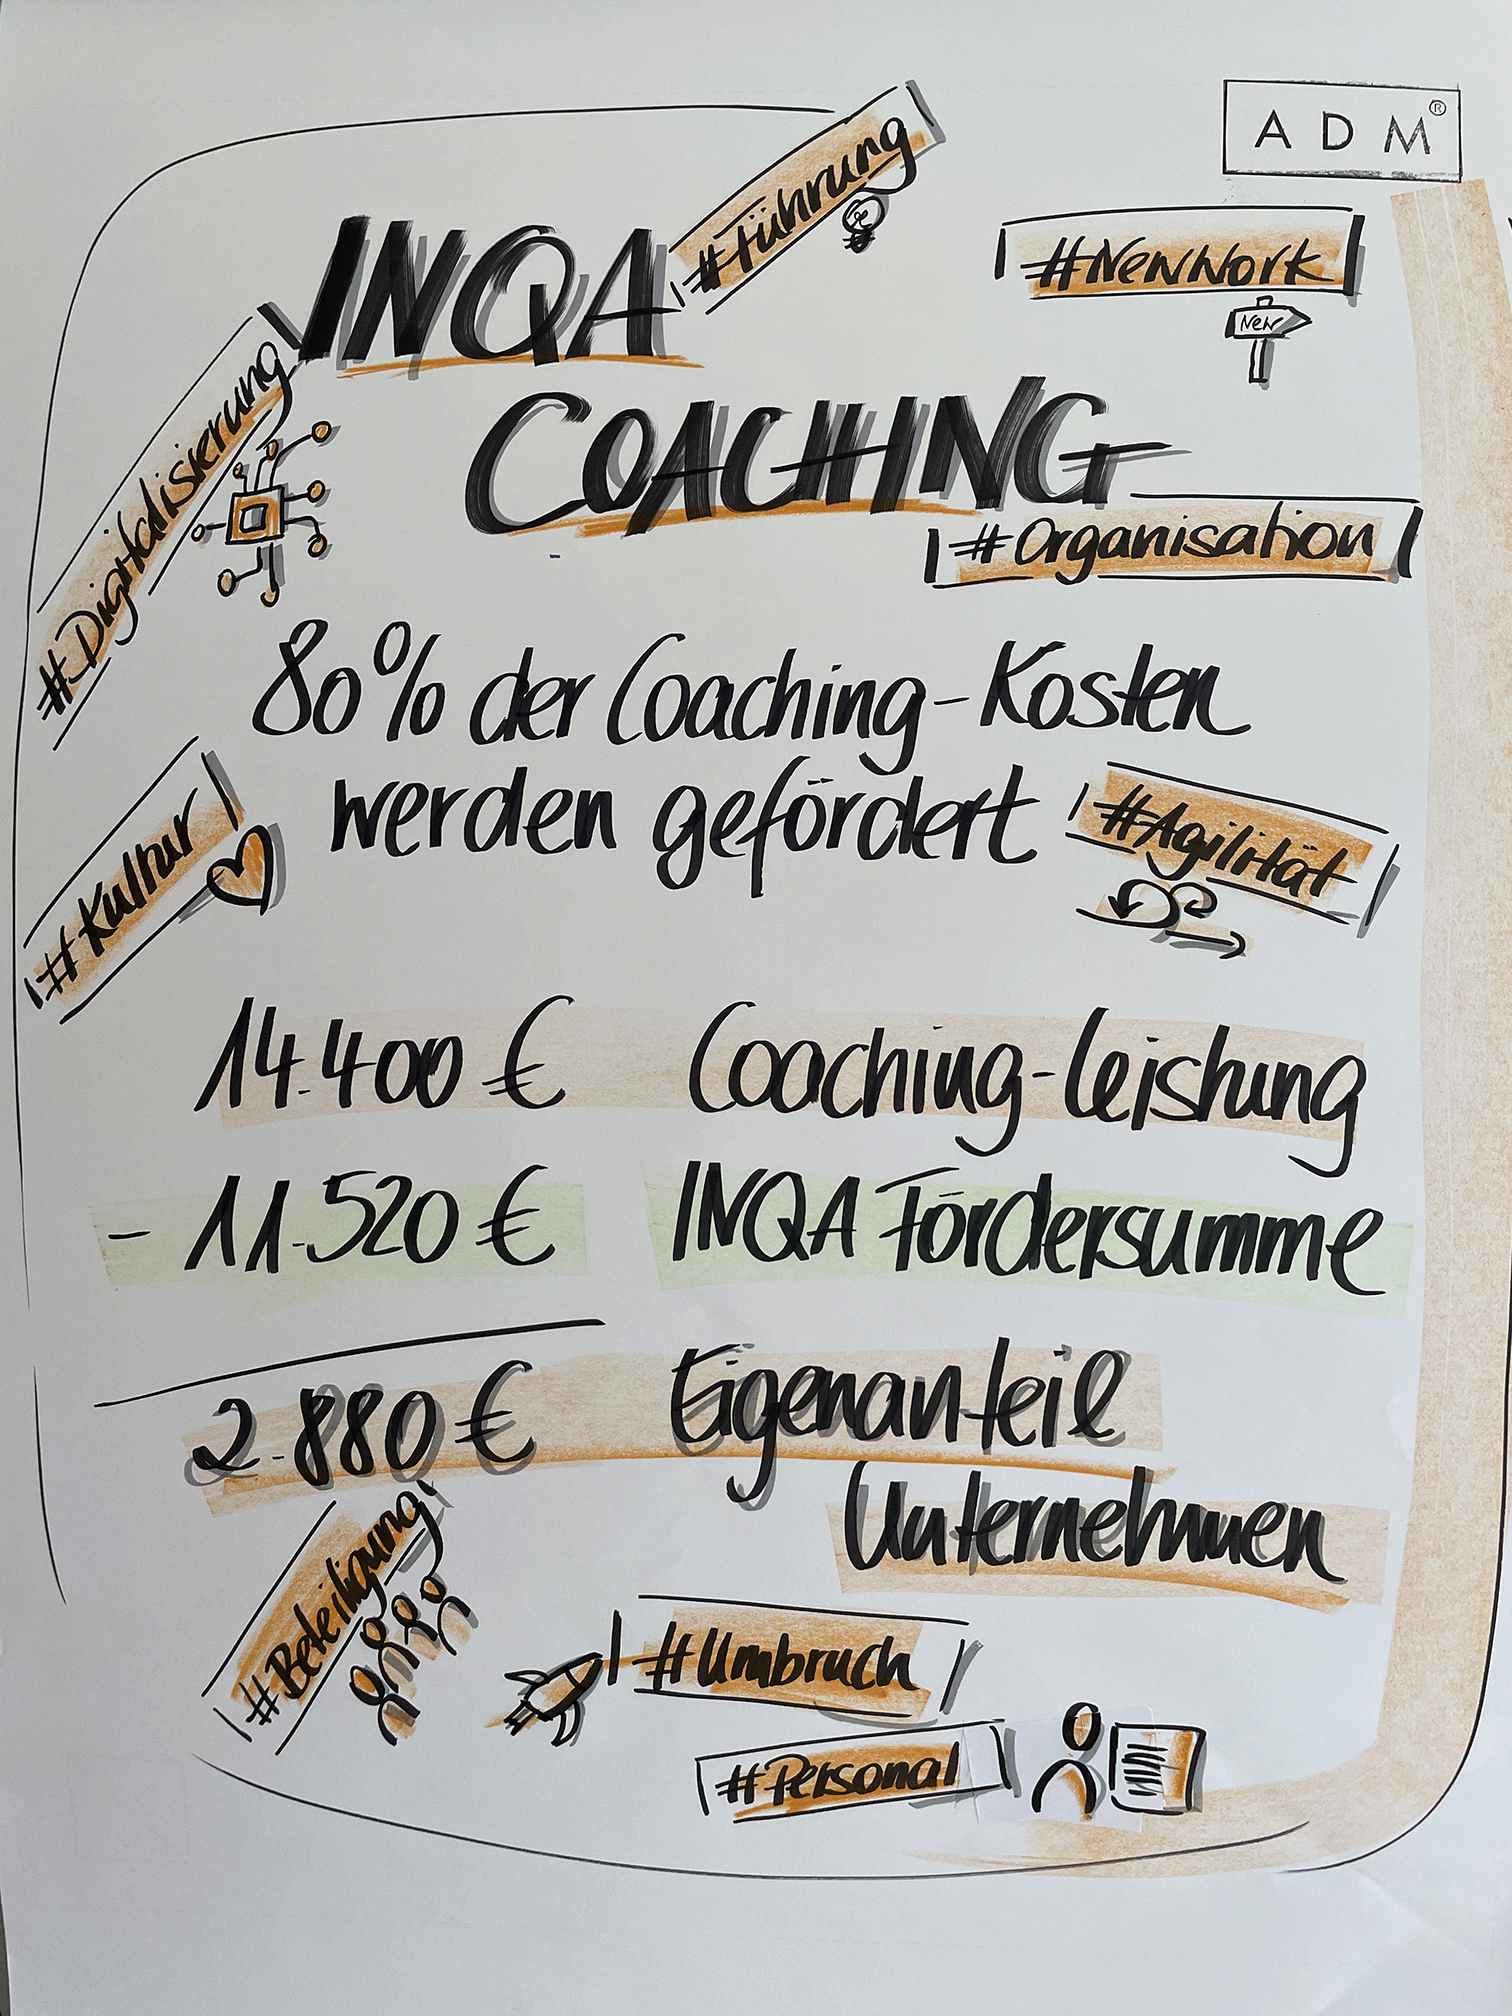 ADM®
#Führung
INQA
#NewWork
New
COACHING
#Digitalisierung
#Organisation
80% der Coaching-Kosten
werden gefördert
#Agilität
#Kultur
14.400 € Coaching-Leistung
- 11.520 € INQA Fördersumme
2.880 € Eigenanteil
Unternehmen
#Beteiligung
#Umbruch
#Personal